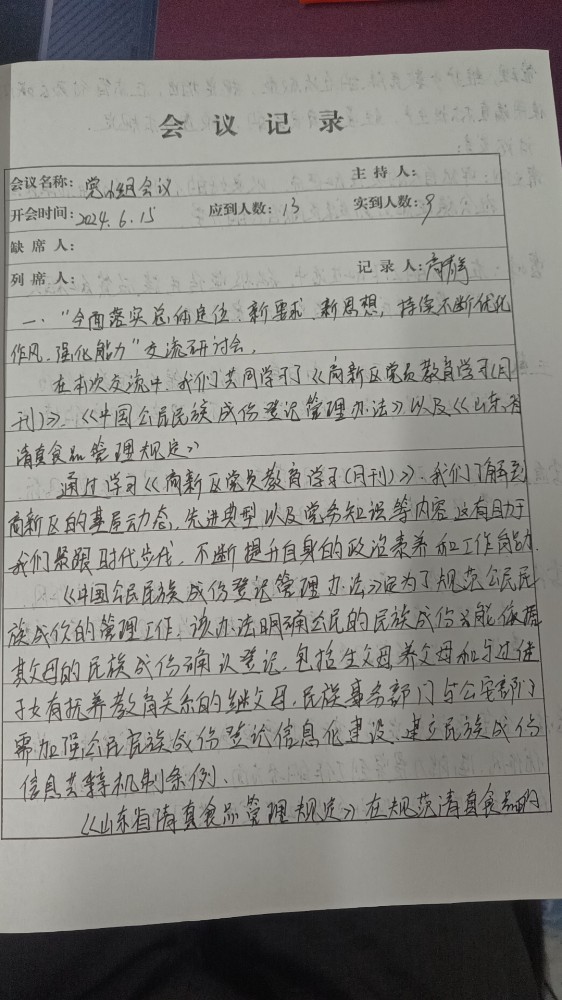 会议记录
会议名称：党小组会议 主持人：
开会时间：2024.6.15 应到人数：13 实到人数：9
缺席人：
列席人： 记录人：
一、“全面落实总体定位、新要求、新思想，持续不断优化
作风、强化能力”交流研讨会。
在本次交流中，我们共同学习了《高新区党员教育学习(月
刊)》、《中国公民民族成份登记管理办法》以及《山东省
清真食品管理规定》
通过学习《高新区党员教育学习(月刊)》，我们了解到
高新区的基层动态，先进典型以及党务知识等内容，这有助于
我们紧跟时代步伐，不断提升自身的政治素养和工作能力.
《中国公民民族成份登记管理办法》是为了规范公民民
族成份的管理工作，该办法明确公民的民族成份只能依据
其父母的民族成份确认登记，包括生父母养父母和与过继
子女有抚养教育关系的继父母，民族事务部门与公安部门
需加强公民民族成份登记信息化建设，建立民族成份
信息共享机制条例.
《山东省清真食品管理规定》在规范清真食品的